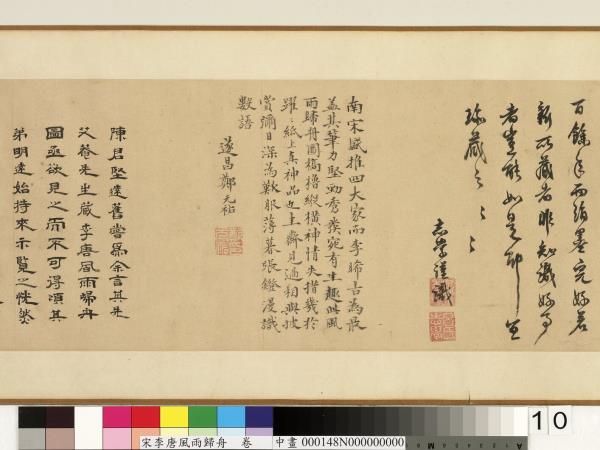 百餘年而絹墨完好若
新所藏者非知識好事
者安能如是耶宜
珍藏之〻〻
志學謹識
南宋盛推四大家而李晞古為最
蓋其筆力堅勁秀發宛有生趣此風
雨歸舟圖檣櫓縱橫神情失措幾於
躍〻紙上真神品也上齋見過相與披
賞彌日深為歎服薄暮張鐙漫識
數語
遂昌鄭元祐
陳君堅遠舊嘗為余言其先
父菴先生藏李唐風雨歸舟
圖亟欲見之而不可得頃其
弟明遠始持來示覽之恍然
宋李唐風雨歸舟 卷
中畫 000148N000000000
10